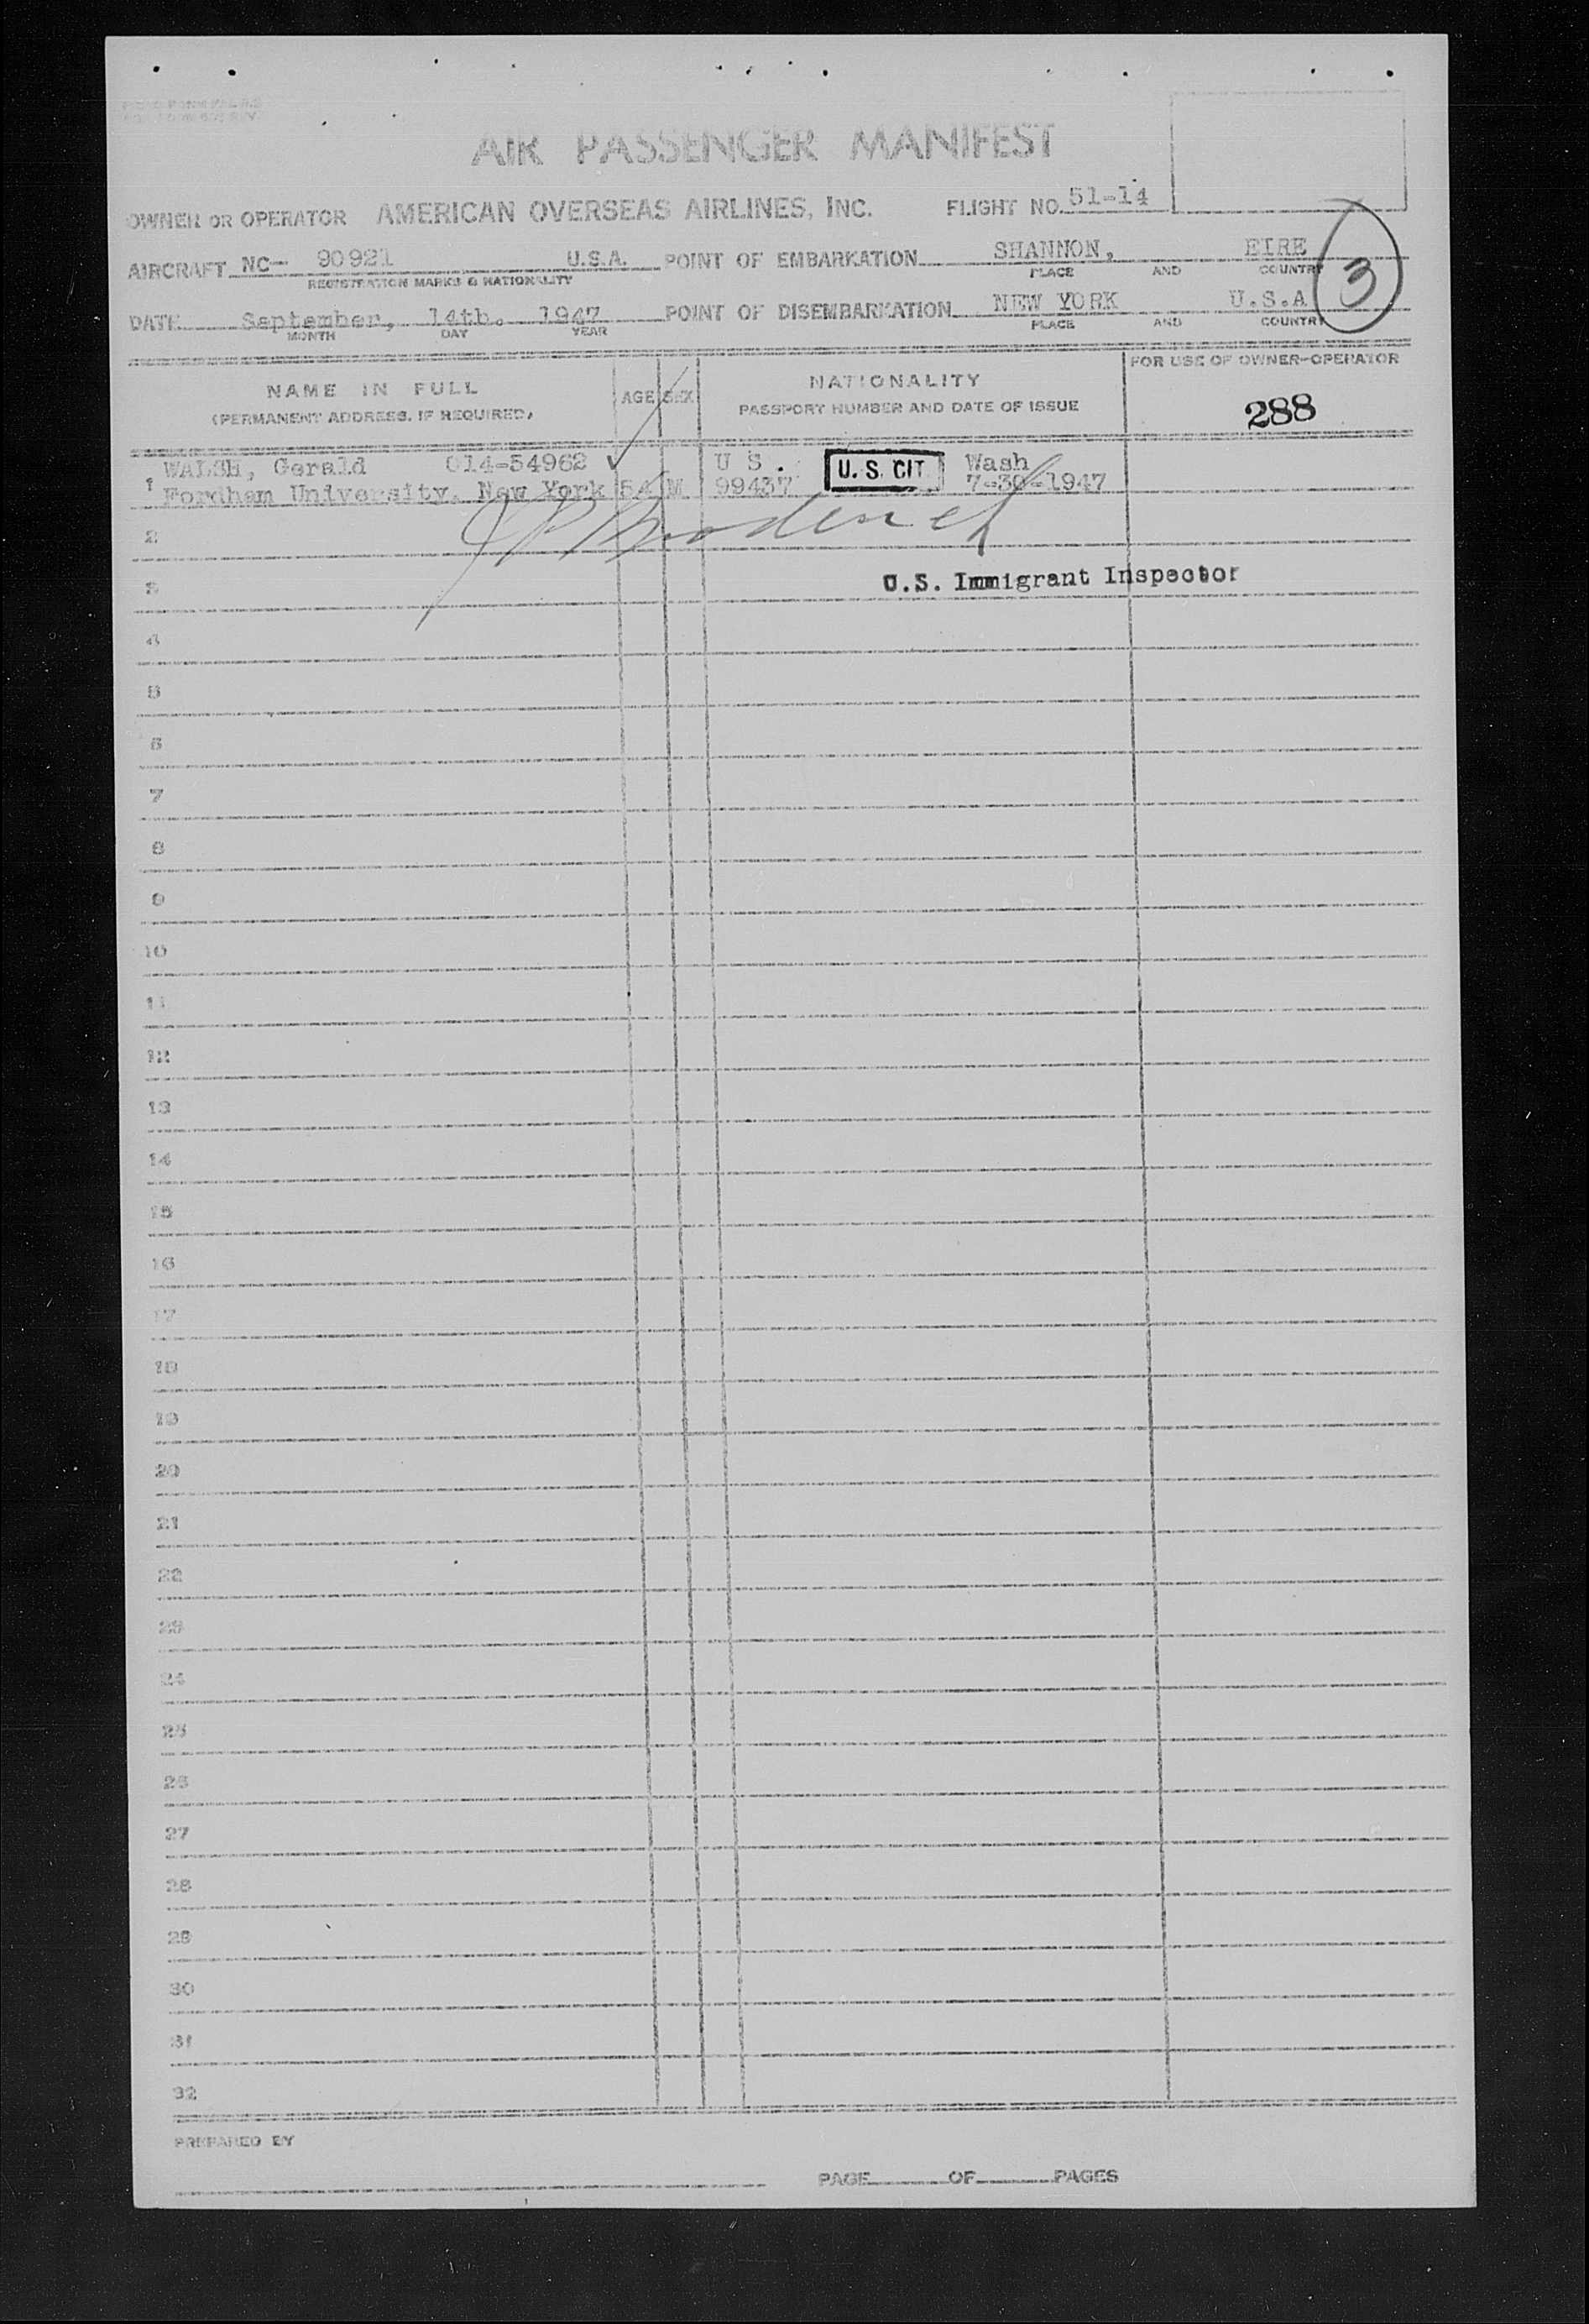 AIR PASSENGER MANIFEST
OWNER OR OPERATOR AMERICAN OVERSEAS AIRLINES, INC. FLIGHT NO. 51-14
AIRCRAFT NC- 90921 U.S.A. POINT OF EMBARKATION SHANNON, EIRE
REGISTRATION MARKS & NATIONALITY PLACE AND COUNTRY
3
DATE September, 14th. 1947 POINT OF DISEMBARKATION NEW YORK U.S.A
MONTH DAY YEAR PLACE AND COUNTRY
FOR USE OF OWNER-OPERATOR
NAME IN FULL AGE SEX NATIONALITY
(PERMANENT ADDRESS, IF REQUIRED) PASSPORT NUMBER AND DATE OF ISSUE 288
WALSH, Gerald 014-54962 ✓ U S . U. S. CIT. Wash
1 Fordham University, New York M 99437 7-30-1947
2
U.S. Immigrant Inspector
3
4
5
6
7
8
9
10
11
12
13
14
15
16
17
18
19
20
21
22
23
24
25
26
27
28
29
30
31
32
PREPARED BY
PAGE OF PAGES